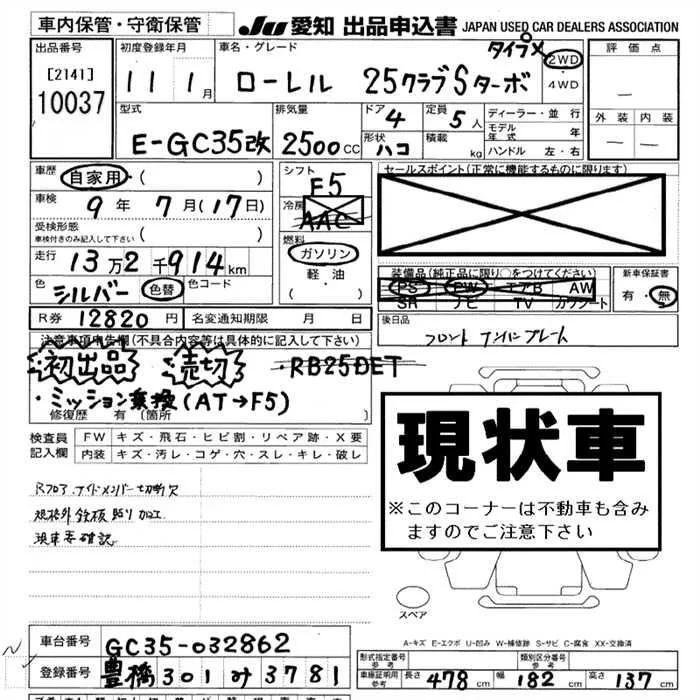 車内保管・守衛保管 JU 愛知 出品申込書 JAPAN USED CAR DEALERS ASSOCIATION
出品番号 [2141] 10037
初度登録年月 11 1月
車名・グレード ローレル 25クラブSターボ タイプM
2WD・4WD
評価点 —
外装 内装
— —
型式 E-GC35改
排気量 2500cc
ドア 4
定員 5人
形状 ハコ
積載 kg
ディーラー・並行
モデル年式 年
ハンドル 左・右
車歴 自家用・( )
シフト F5
セールスポイント(正常に機能するものに限ります)
車検 9年 7月(17日)
冷房 AAC
受検形態 ( )
車検付きのみ記入して下さい
燃料 ガソリン・軽油
走行 13万2千914km
装備品(純正品に限り○をつけてください)
PS PW エアB AW
SR ナビ TV カワシート
新車保証書 有・無
色 シルバー 色替 色コード
R券 12820円 名変通知期限 月 日
後日品
フロント ナンバープレート
注意事項申告欄(不具合内容等は具体的に記入して下さい)
初出品 売切 ・RB25DET
・ミッション乗換(AT→F5)
修復歴 有 [箇所
検査員記入欄 FW キズ・飛石・ヒビ割・リペア跡・X要
内装 キズ・汚レ・コゲ・穴・スレ・キレ・破レ
現状車
※このコーナーは不動車も含みますのでご注意下さい
Rフロア、サイドメンバー切断欠
規格外鉄板貼り加工
現車要確認
スペア
A-キズ E-エクボ U-凹み W-補修跡 S-サビ C-腐食 XX-交換済
車台番号 GC35-032862
登録番号 豊橋 301 み 3781
形式指定番号 参考
類別区分番号 参考
車庫証明用 参考 長さ 478cm 幅 182cm 高さ 137cm